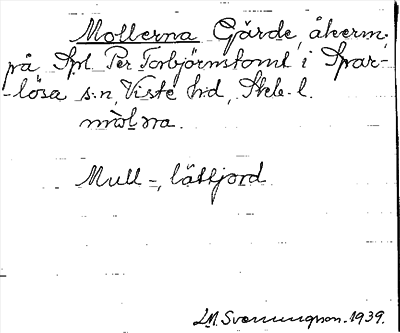 Mollerna Gärde, åkerm.
på Spl. Per Torbjörnstomt i Spar-
-lösa s:n, Viste h:d, Skb. l.
mòlṇa.
Mull-, lätljord
J.M. Svenungsson. 1939.